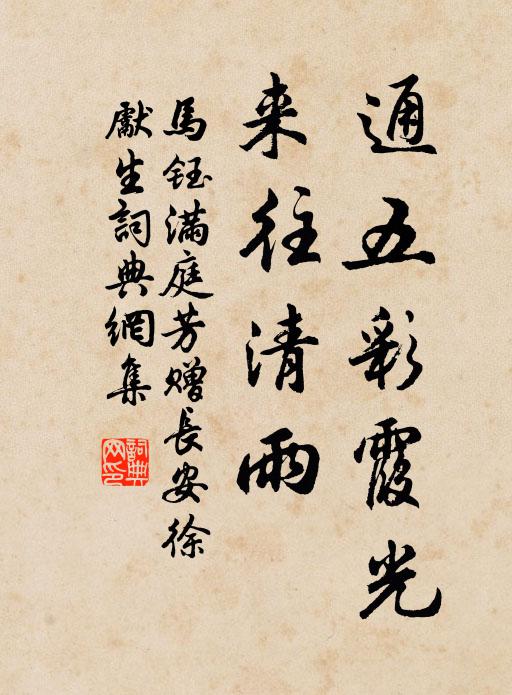 通五彩霞光
来往清雨
馬鈺滿庭芳赠長安徐
獻生詞典網集
詞典网印